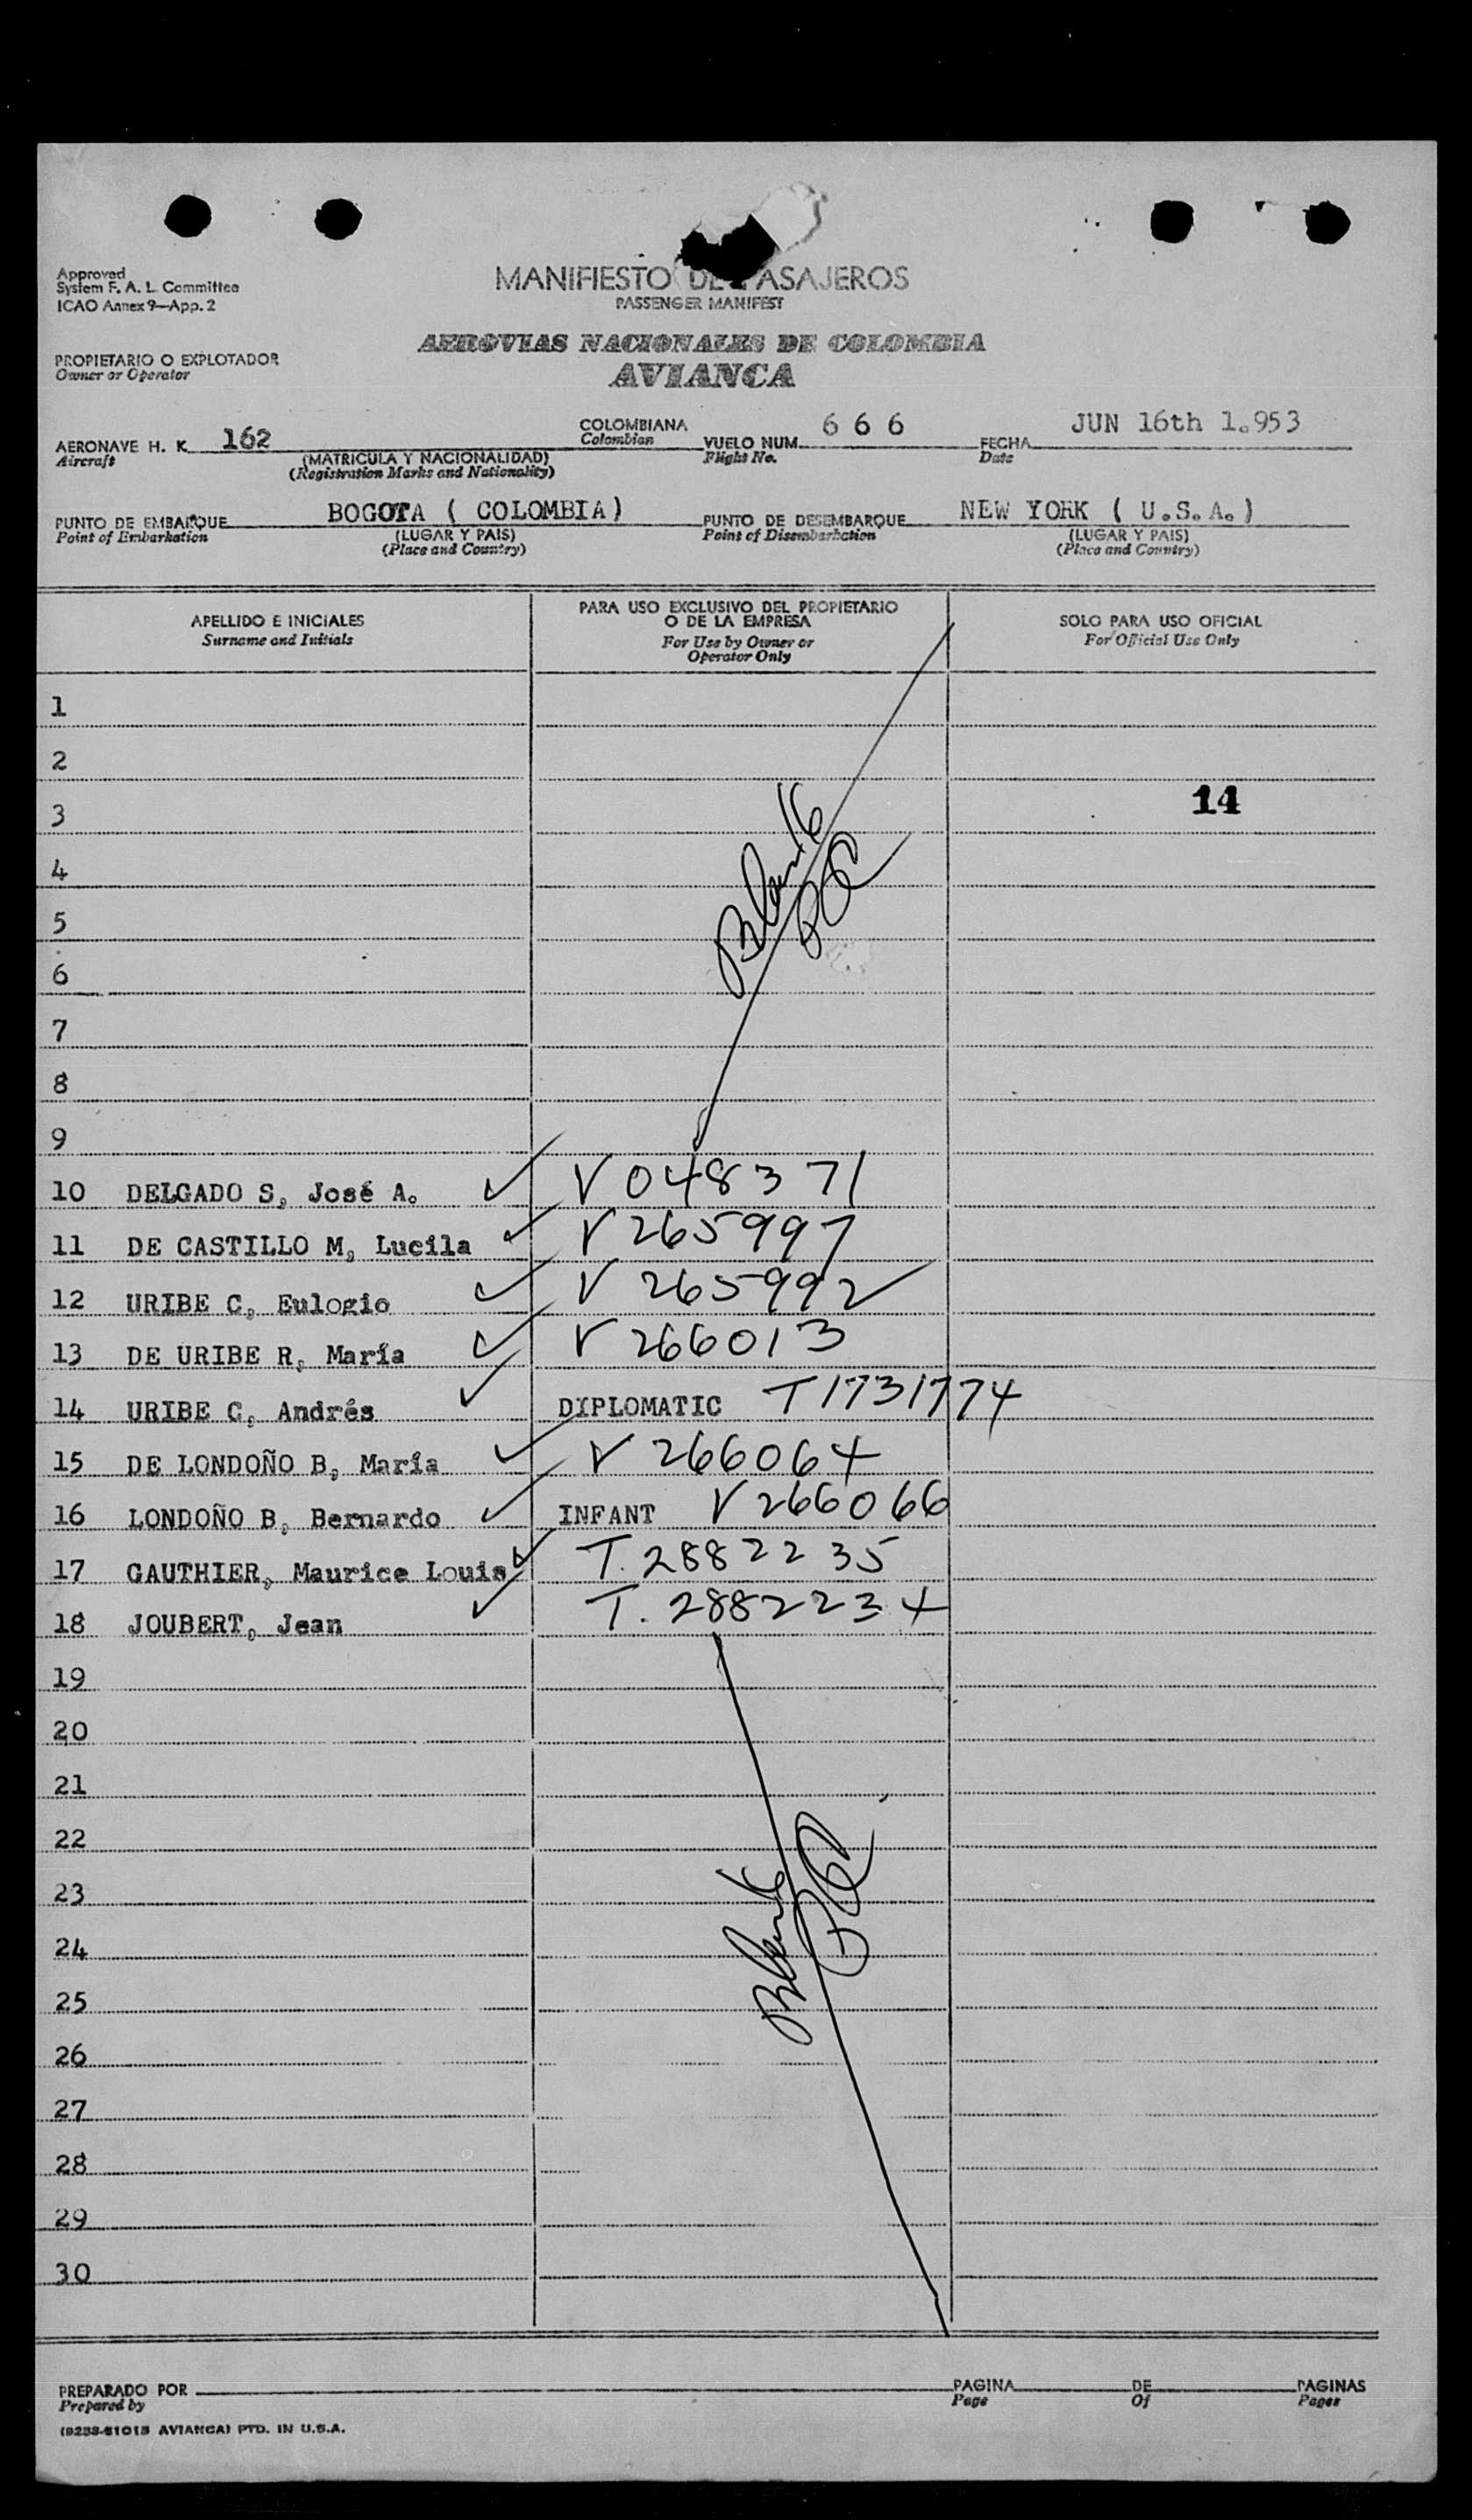 Approved
System F. A. L. Committee
ICAO Annex 9—App. 2
MANIFIESTO DE PASAJEROS
PASSENGER MANIFEST
AEROVIAS NACIONALES DE COLOMBIA
AVIANCA
PROPIETARIO O EXPLOTADOR
Owner or Operator
AERONAVE H. K. 162 COLOMBIANA VUELO NUM. 6 6 6 FECHA JUN 16th 1.953
Aircraft (MATRICULA Y NACIONALIDAD) Colombian Flight No. Date
(Registration Marks and Nationality)
PUNTO DE EMBARQUE BOGOTA ( COLOMBIA) PUNTO DE DESEMBARQUE NEW YORK ( U.S.A.)
Point of Embarkation (LUGAR Y PAIS) Point of Disembarkation (LUGAR Y PAIS)
(Place and Country) (Place and Country)
APELLIDO E INICIALES
Surname and Initials
PARA USO EXCLUSIVO DEL PROPIETARIO
O DE LA EMPRESA
For Use by Owner or
Operator Only
SOLO PARA USO OFICIAL
For Official Use Only
1
2
3 14
4
Blank
5
6
7
8
9
10 DELGADO S, José A. V 0483 71
11 DE CASTILLO M, Lucila V 265997
12 URIBE C, Eulogio V 265992
13 DE URIBE R, María V 266013
14 URIBE C, Andrés DIPLOMATIC T1731774
15 DE LONDOÑO B, María V 266064
16 LONDOÑO B, Bernardo INFANT V266066
17 GAUTHIER, Maurice Louis T. 2882235
18 JOUBERT, Jean T. 2882234
19
20
21
22
23
24
Blank
25
26
27
28
29
30
PREPARADO POR PAGINA DE PAGINAS
Prepared by Page Of Pages
(9233-61013 AVIANCA) PTD. IN U.S.A.